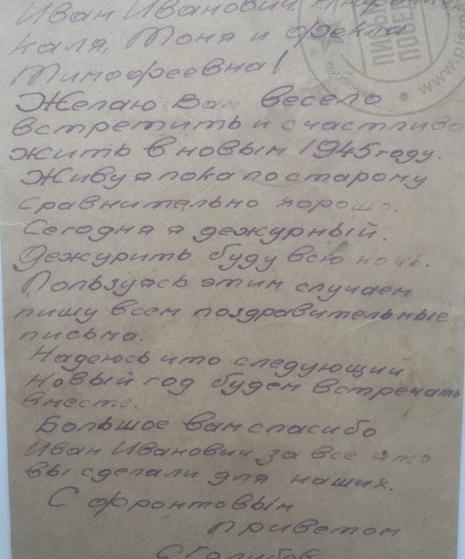 Иван Иванович
Каля, Тоня и Фекла
Тимофеевна!
Желаю Вам весело
встретить и счастливо
жить в новым 1945 году.
Живу я пока по старому
сравнительно хорошо.
Сегодня я дежурный.
Дежурить буду всю ночь.
Пользуясь этим случаем
пишу всем поздравительные
письма.
Надеюсь что следующий
новый год будем встречать
вместе.
Большое вам спасибо
Иван Иванович за все что
вы сделали для наших.
С фронтовым
приветом
ПИСЬМА
ПОБЕДЫ